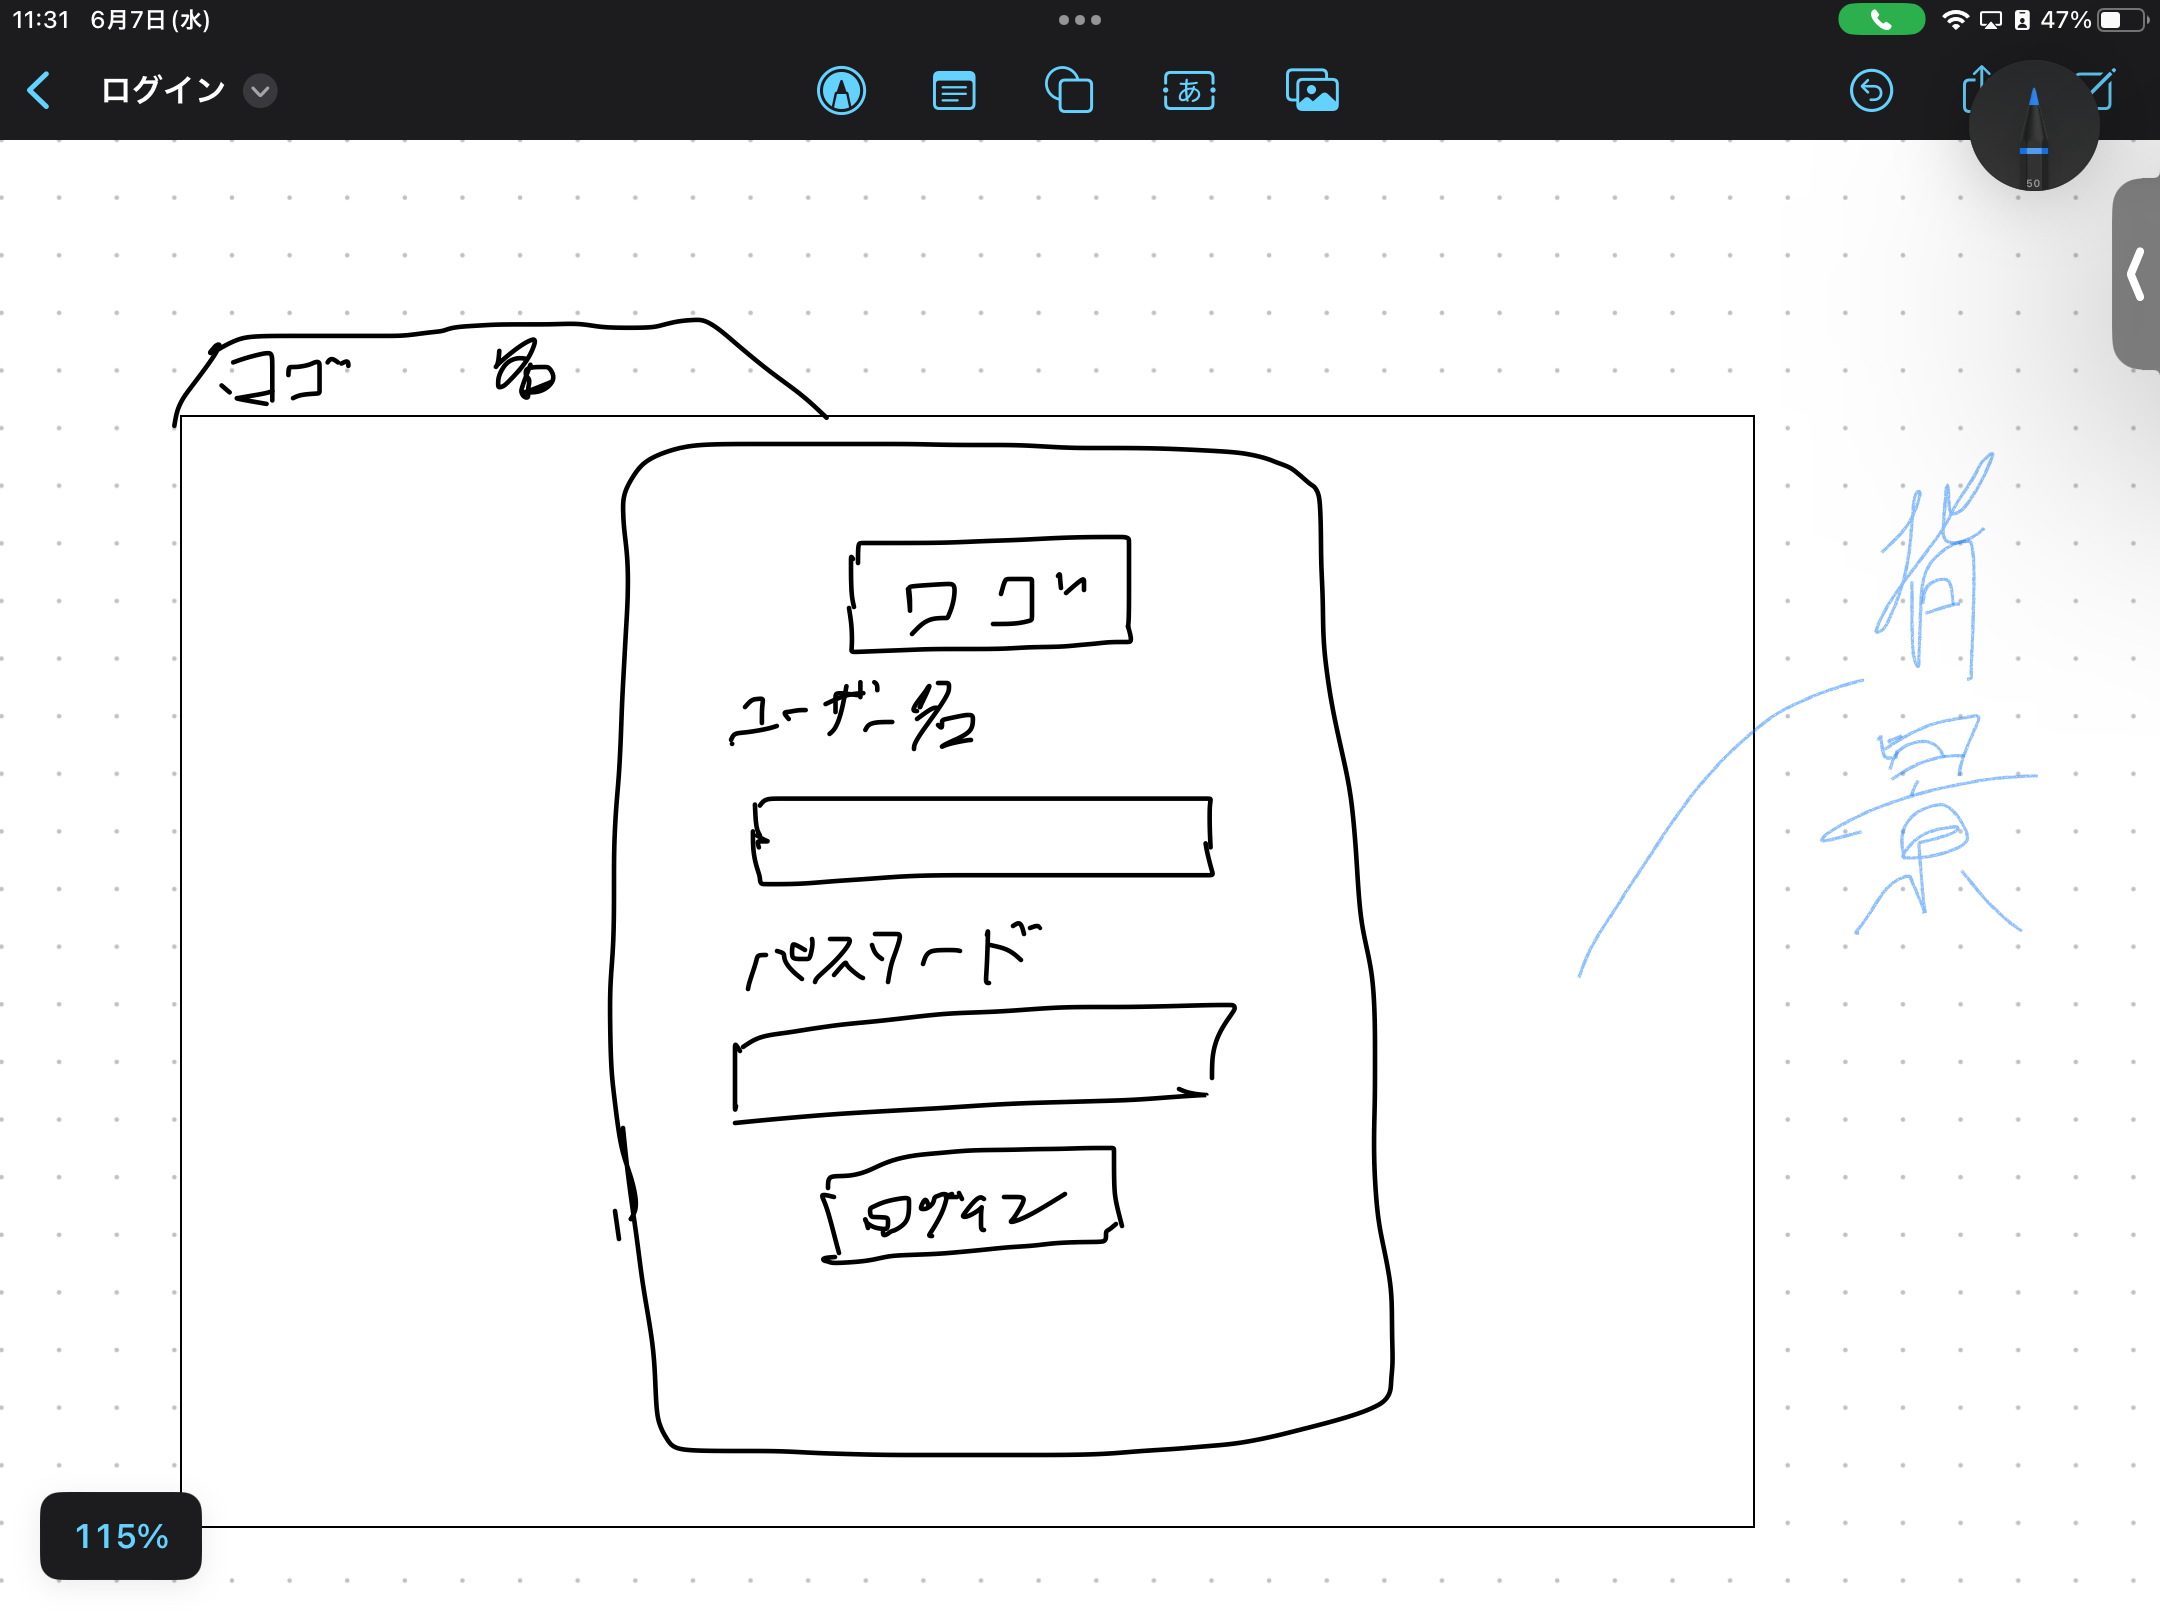 11:31 6月7日(水) 47%
ログイン あ
50
ロゴ 名
ロゴ
ユーザー名
パスワード
ログイン
背景
115%